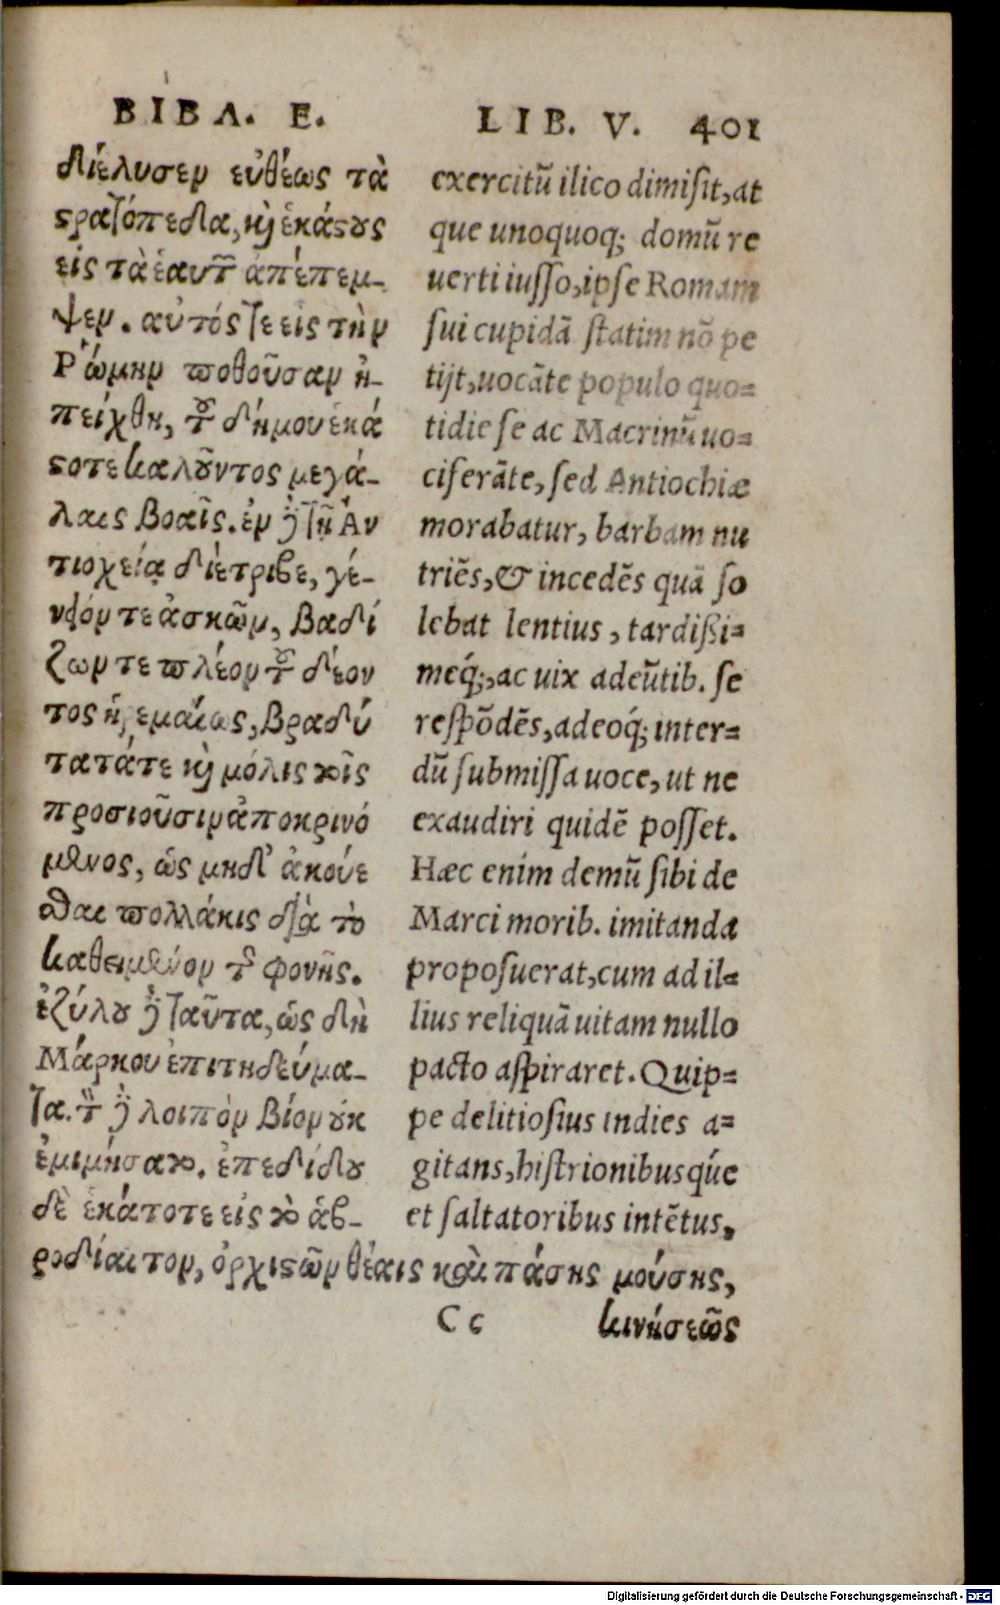 ΒΙΒΛ. Ε.
διέλυσεν εὐθέως τὰ
στρατόπεδα, καὶ ἑκάστους
εἰς τὰ ἑαυτῶν ἀπέπεμ-
ψεν. αὐτός τε εἰς τὴν
Ῥώμην ποθοῦσαν ἠ-
πείχθη, τοῦ δήμου ἑκά
στοτε καλοῦντος μεγά-
λαις βοαῖς. ἐν δὲ τῇ Ἀν
τιοχείᾳ διέτριβε, γέ-
νειόν τε ἀσκῶν, βαδί
ζων τε πλέον τοῦ δέον
τος ἠρεμαίως, βραδύ
τατά τε καὶ μόλις τοῖς
προσιοῦσιν ἀποκρινό
μενος, ὡς μηδ' ἀκούε
σθαι πολλάκις διὰ τὸ
καθειμένον τῆς φονῆς.
ἐζύλου δὲ ταῦτα, ὡς δὴ
Μάρκου ἐπιτηδεύμα-
τα. τὸν δὲ λοιπὸν βίον οὐκ
ἐμιμήσατο. ἐπεδίδου
δὲ ἑκάτοτε εἰς τὸ ἁβ-
ροδίαιτον, ὀρχιστῶν θέαις καὶ πάσης μούσης,
LIB. V. 401
exercitũ ilico dimiſit, at
que unoquoq; domũ re
uerti iuſſo, ipſe Romam
ſui cupidã ſtatim nõ pe
tijt, uocãte populo quo=
tidie ſe ac Macrinũ uo=
ciferãte, ſed Antiochiæ
morabatur, barbam nu
triẽs, & incedẽs quã ſo
lebat lentius, tardißi=
meq́;, ac uix adeũtib. ſe
reſpõdẽs, adeoq́; inter=
dũ ſubmiſſa uoce, ut ne
exaudiri quidẽ poſſet.
Hæc enim demũ ſibi de
Marci morib. imitanda
propoſuerat, cum ad il=
lius reliquã uitam nullo
pacto aſpiraret. Quip=
pe delitioſius indies a=
gitans, hiſtrionibusq́ue
et ſaltatoribus intẽtus,
Cc
κινήσεῶς
Digitalisierung gefördert durch die Deutsche Forschungsgemeinschaft - DFG